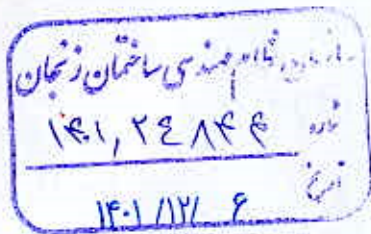 سازمان نظام مهندسی ساختمان زنجان
شماره ۱۴۰۱,۲۴۸۴۴
تاریخ
۱۴۰۱/۱۲/۶